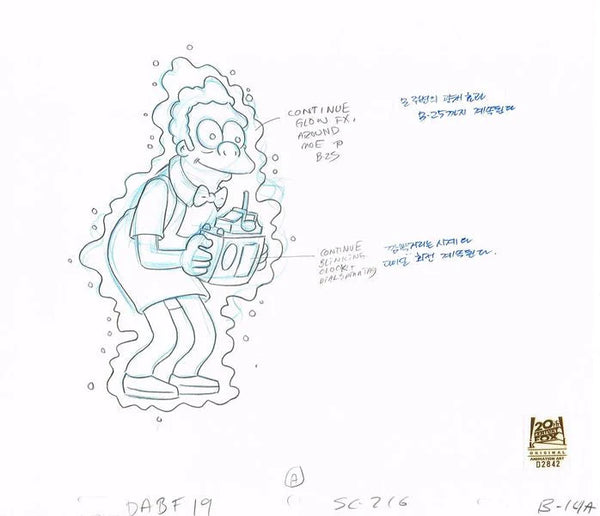 CONTINUE
GLOW FX,
AROUND
MOE TO
B-25
모 주변의 광채 효과
B-25까지 계속된다
CONTINUE
BLINKING
CLOCK &
DIAL SPINNING
깜박거리는 시계와
다이얼 회전 계속된다.
20th
CENTURY
FOX
ORIGINAL
ANIMATION ART
D2842
A
DABF19
SC-216
B-14A